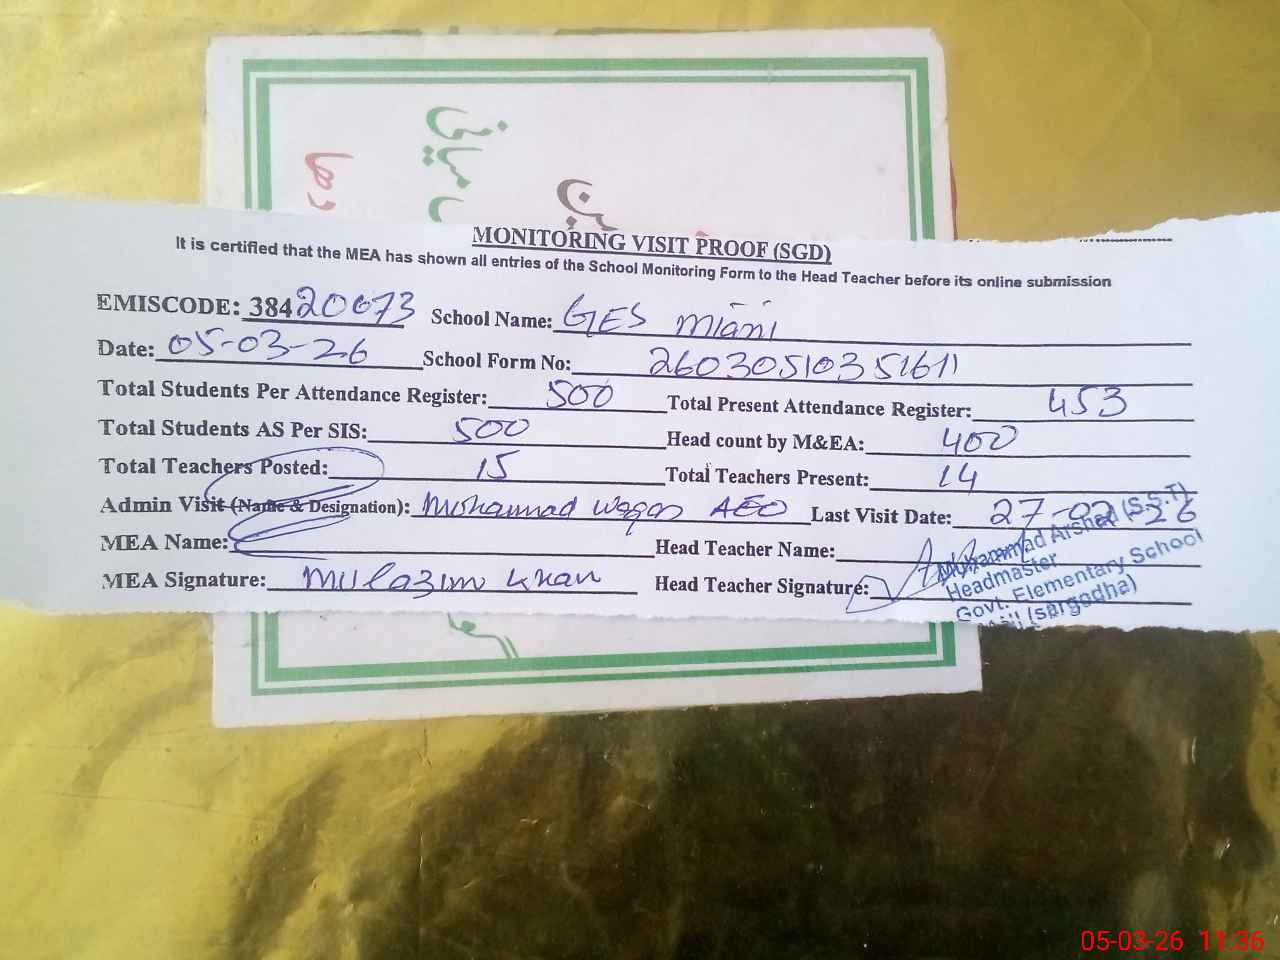 میانی
MONITORING VISIT PROOF (SGD)
It is certified that the MEA has shown all entries of the School Monitoring Form to the Head Teacher before its online submission
EMISCODE: 38420073 School Name: GES Miani
Date: 05-03-26 School Form No: 26030510351611
Total Students Per Attendance Register: 500 Total Present Attendance Register: 453
Total Students AS Per SIS: 500 Head count by M&EA: 400
Total Teachers Posted: 15 Total Teachers Present: 14
Admin Visit (Name & Designation): Mohammad Waqas AEO Last Visit Date: 27-02-26
MEA Name: Head Teacher Name:
MEA Signature: Mulazim Khan Head Teacher Signature:
Muhammad Arshed (S.S.T)
Headmaster
Govt. Elementary School
(Sargodha)
05-03-26 11:36